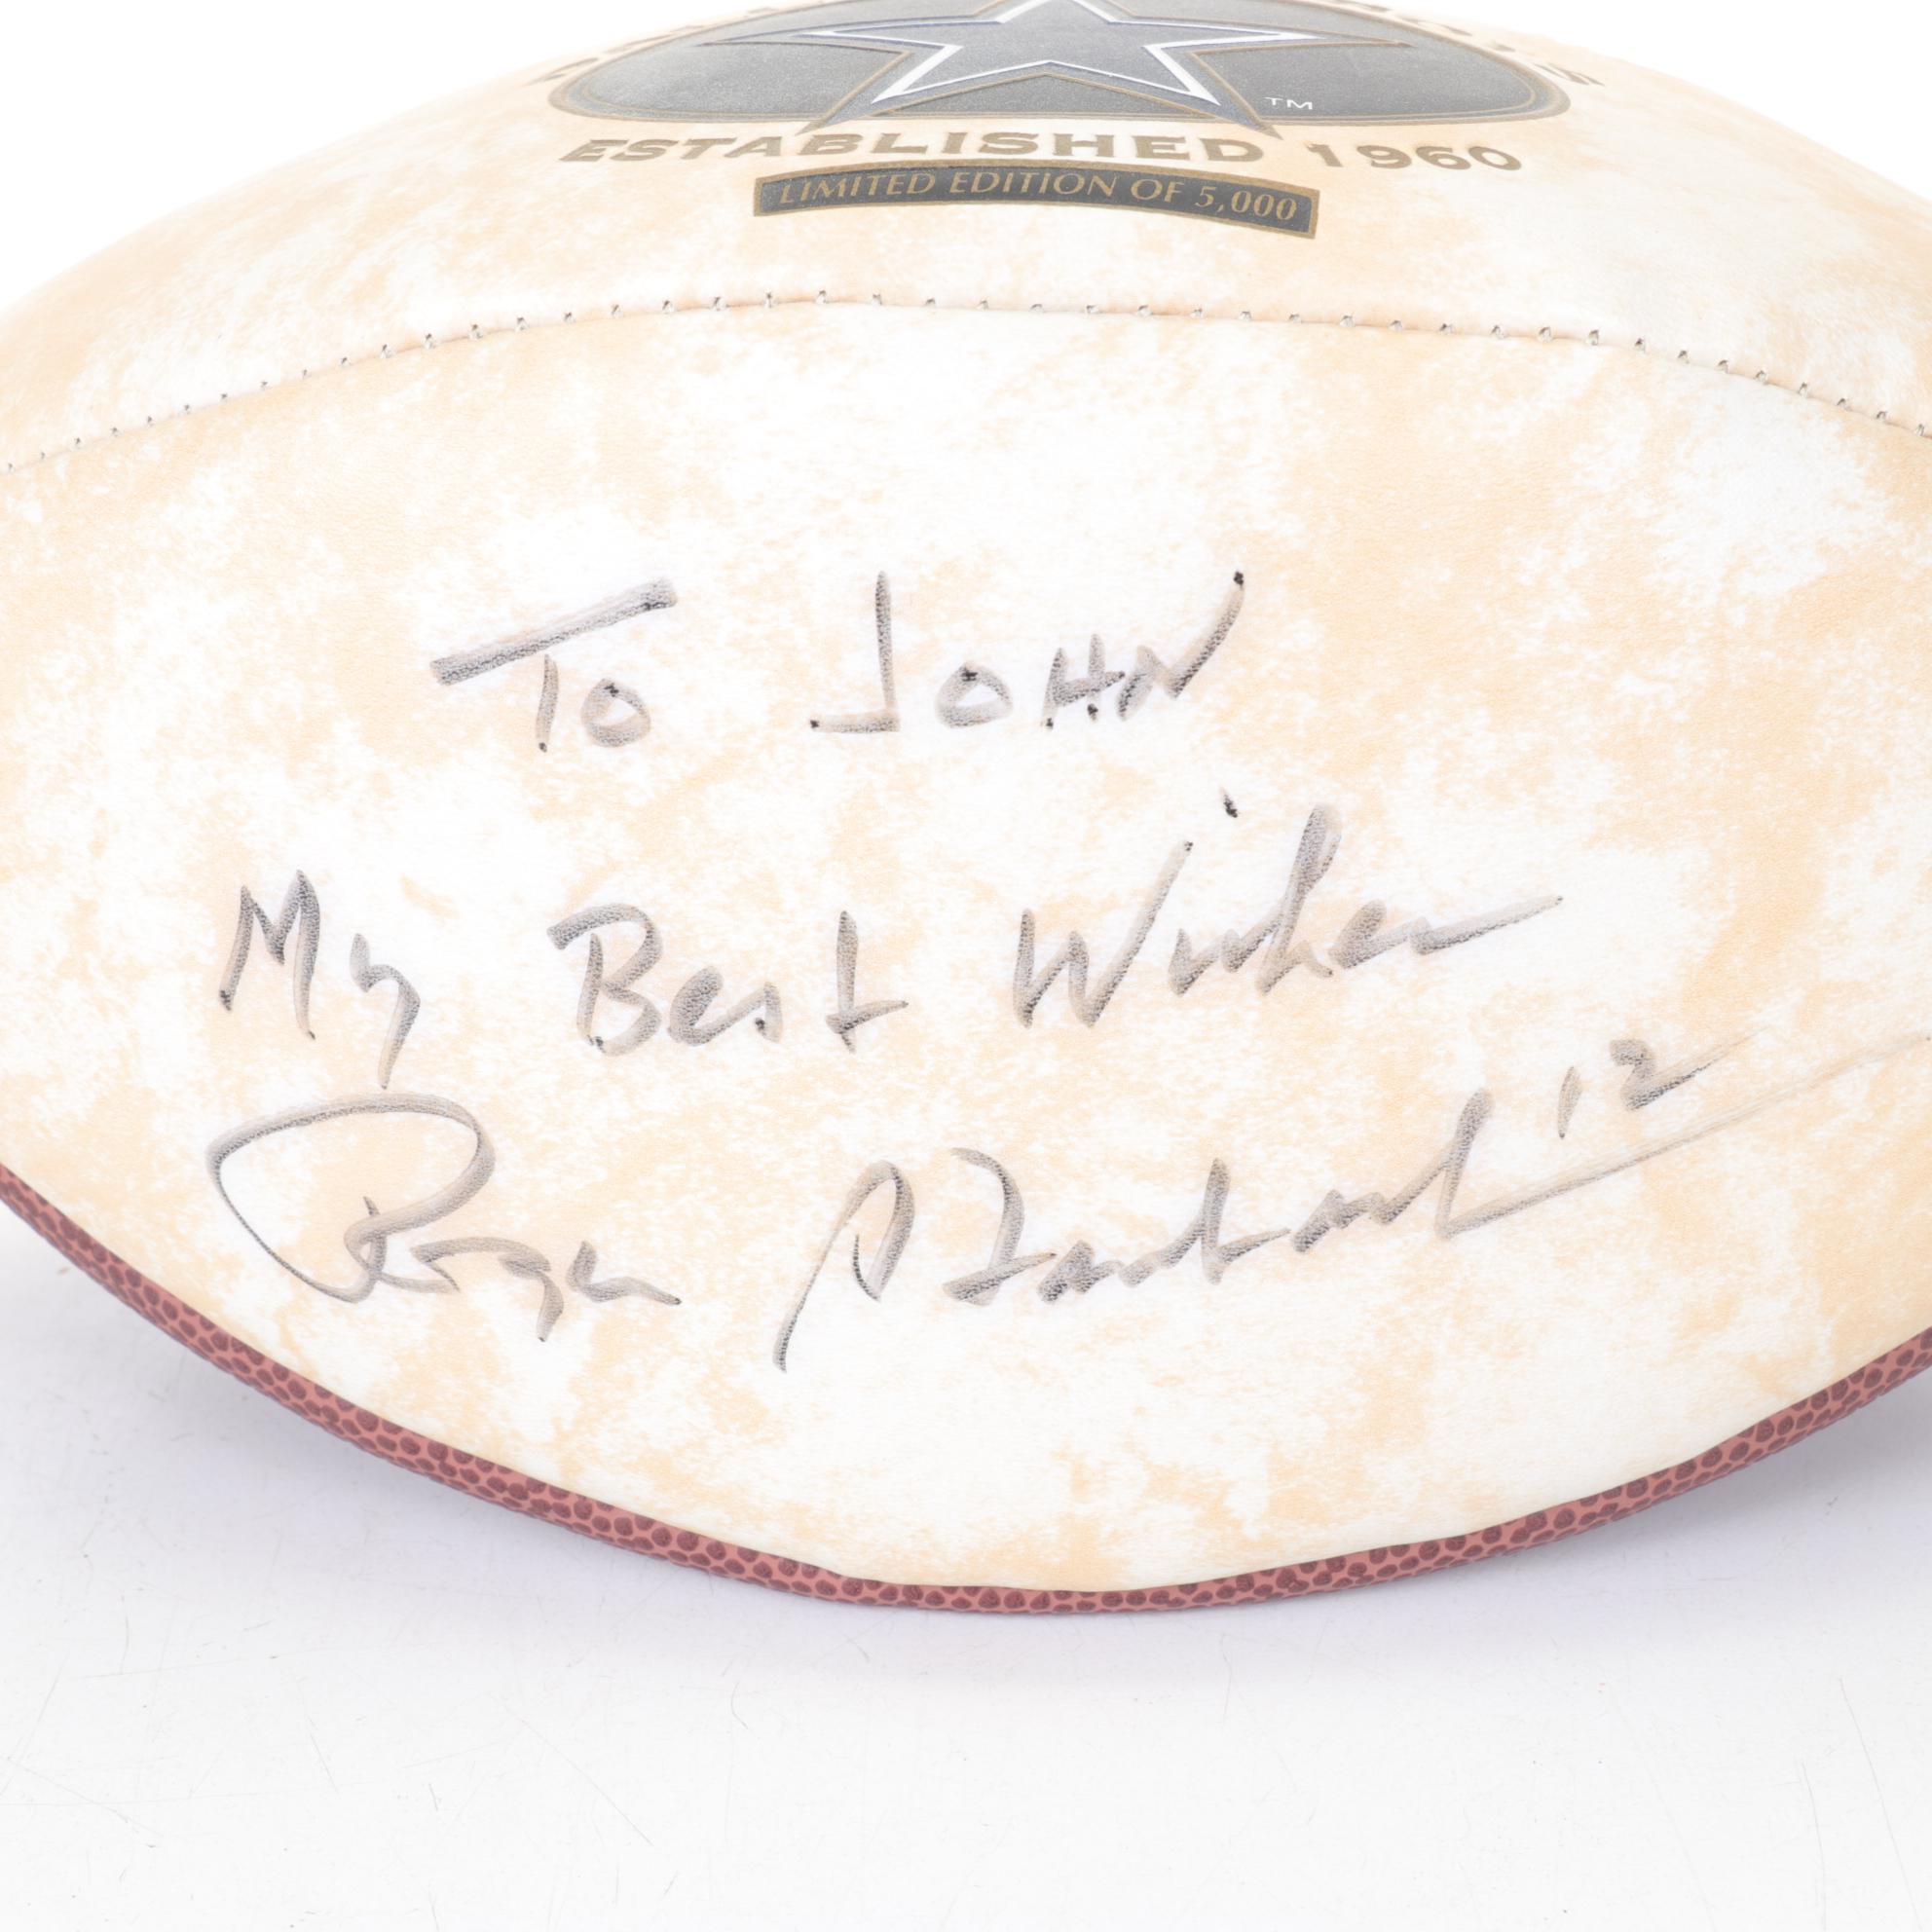 TM
ESTABLISHED 1960
LIMITED EDITION OF 5,000
To JOHN
My Best Wishes
Roger Staubach 12